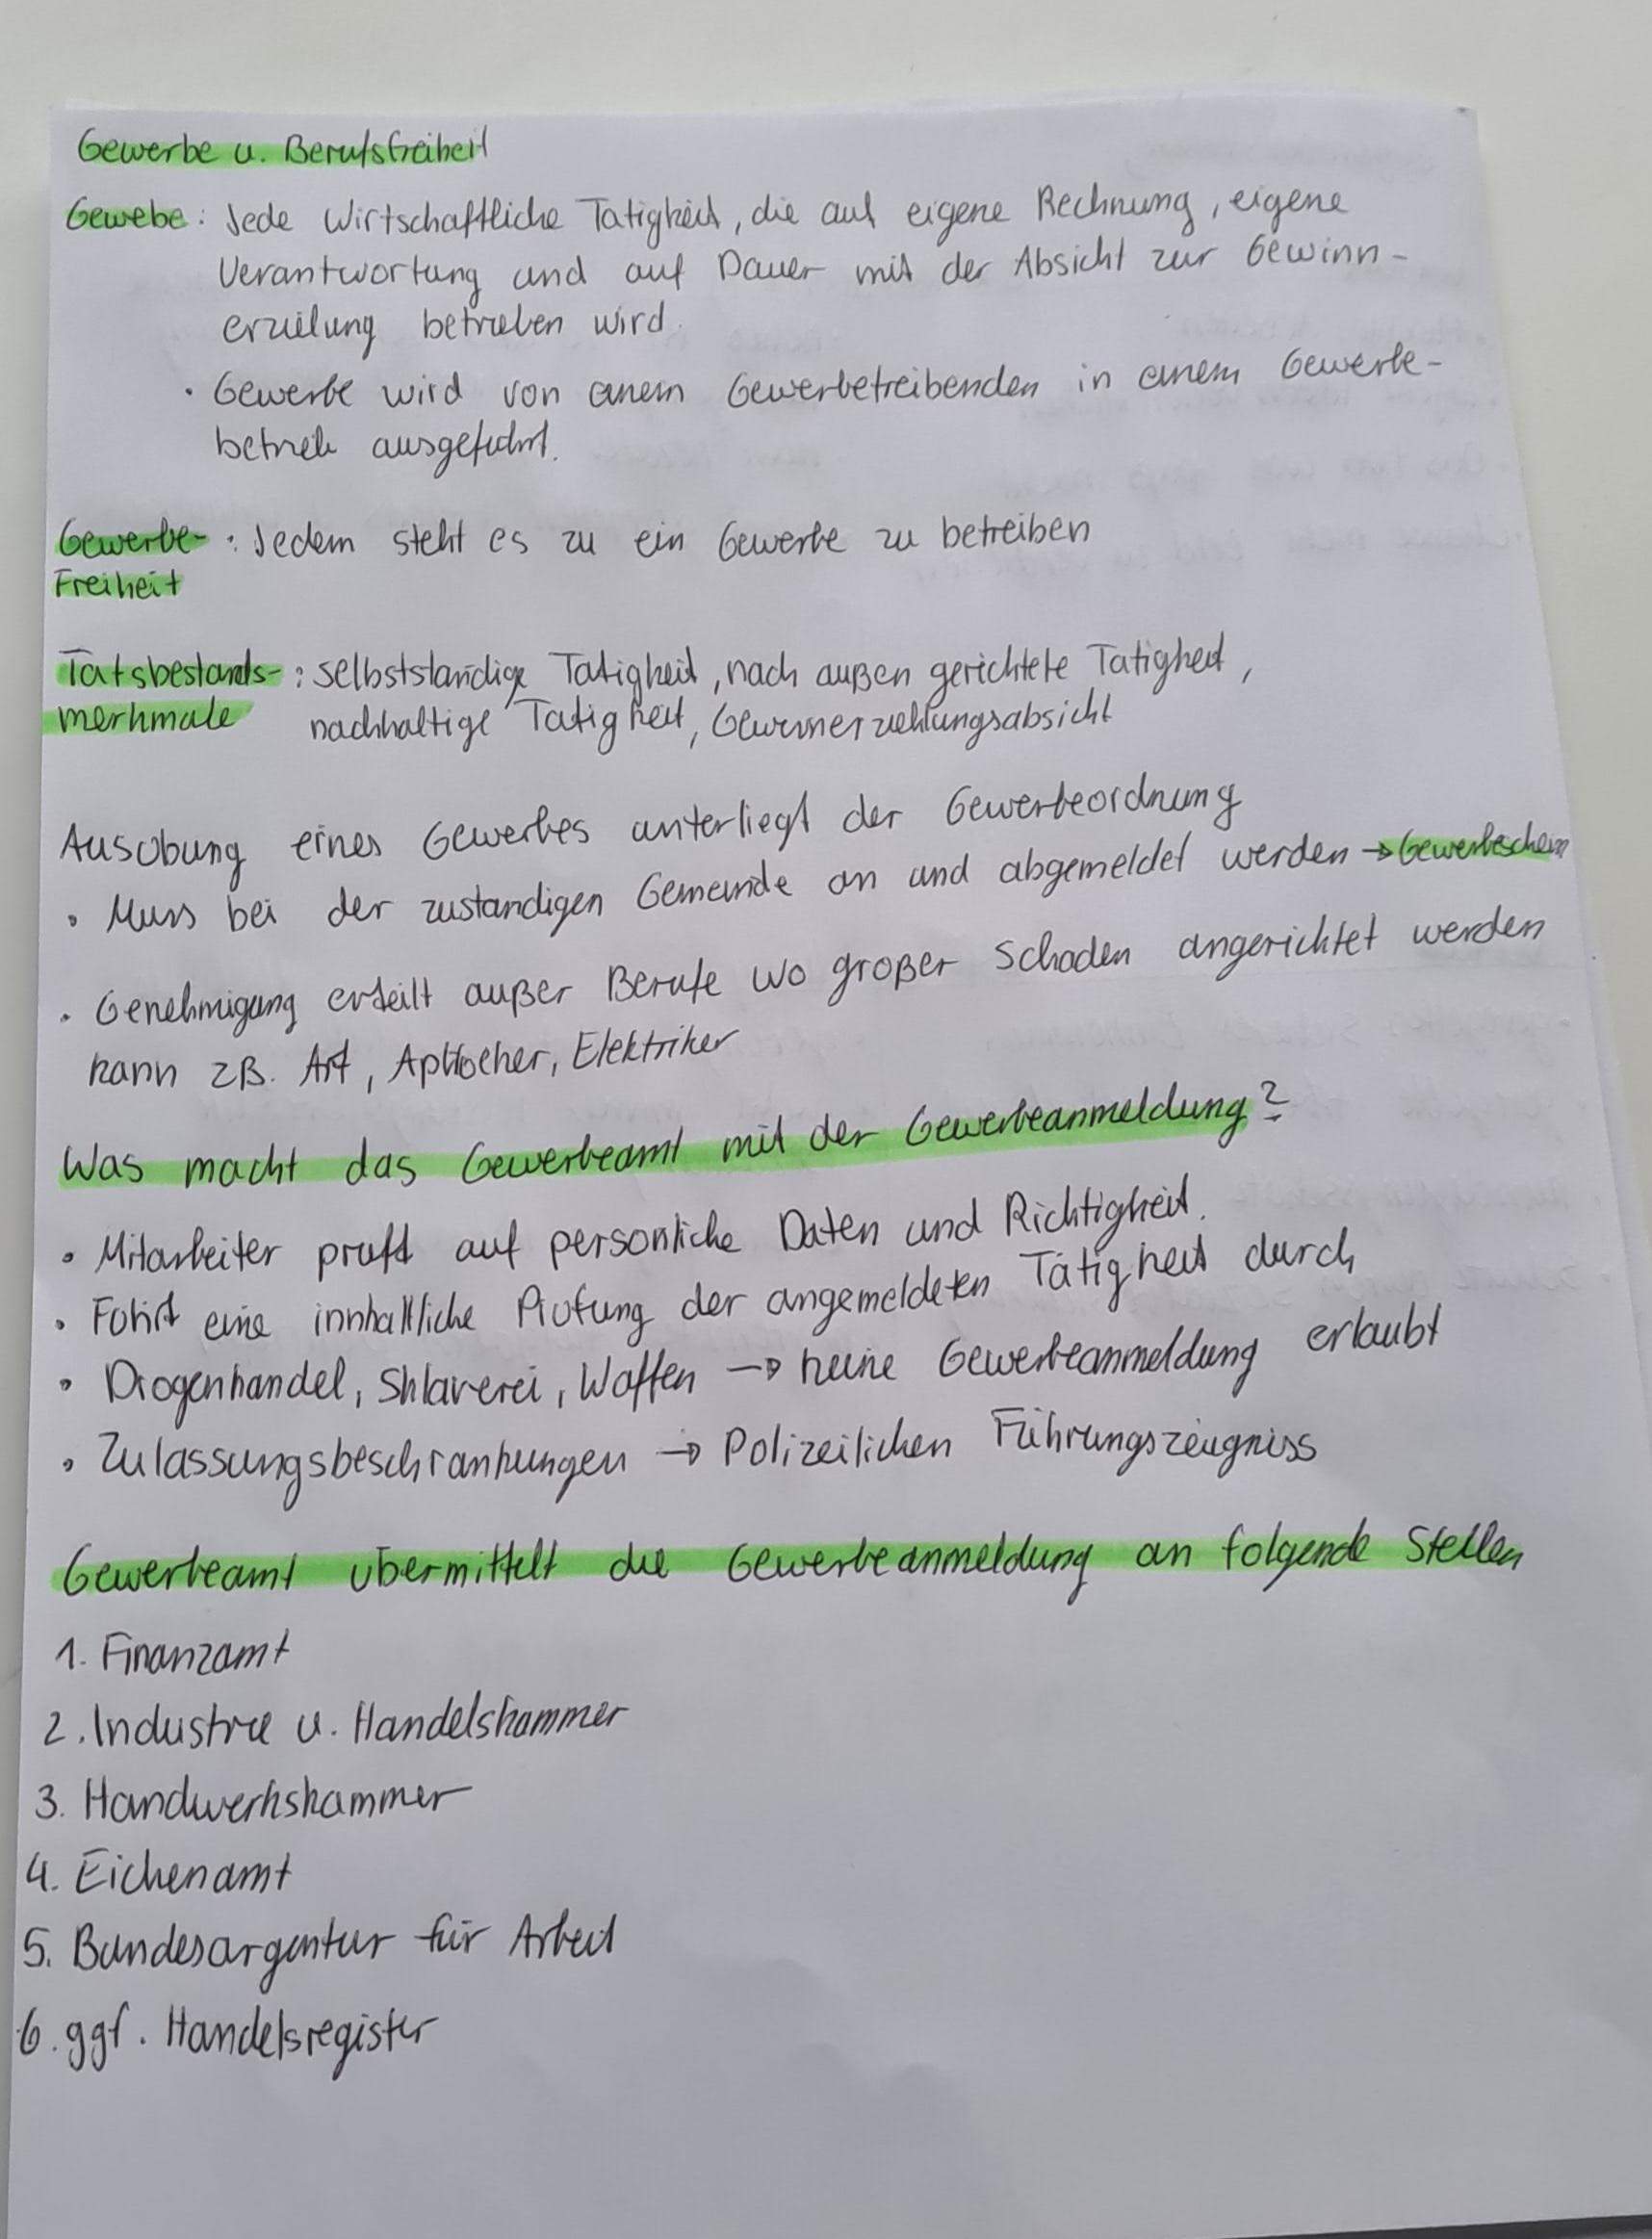 Gewerbe u. Berufsfreiheit
Gewebe: Jede Wirtschaftliche Tatigkeit, die auf eigene Rechnung, eigene
Verantwortung und auf Dauer mit der Absicht zur Gewinn-
erzielung betrieben wird.
• Gewerbe wird von einem Gewerbetreibenden in einem Gewerbe-
betrieb ausgeführt.
Gewerbe- : Jedem steht es zu ein Gewerbe zu betreiben
Freiheit
Tatsbestands- : selbstständige Tatigkeit, nach außen gerichtete Tatigkeit,
merkmale nachhaltige Tatigkeit, Gewinnerziehlungsabsicht
Ausübung eines Gewerbes unterliegt der Gewerbeordnung
• Muss bei der zustandigen Gemeinde an und abgemeldet werden → Gewerbeschein
• Genehmigung erteilt außer Berufe wo großer Schaden angerichtet werden
kann zB. Art, Aphtocher, Elektriker
Was macht das Gewerbeamt mit der Gewerbeanmeldung?
• Mitarbeiter pruft auf personliche Daten und Richtigkeit.
• Führt eine innhaltliche Prüfung der angemeldeten Tätigkeit durch
• Drogenhandel, Sklaverei, Waffen → keine Gewerbeanmeldung erlaubt
• Zulassungsbeschrankungen → Polizeilichen Führungszeugniss
Gewerbeamt übermittelt die Gewerbeanmeldung an folgende Stellen
1. Finanzamt
2. Industrie u. Handelskammer
3. Handwerkskammer
4. Eichenamt
5. Bundesargentur für Arbeit
6. ggf. Handelsregister